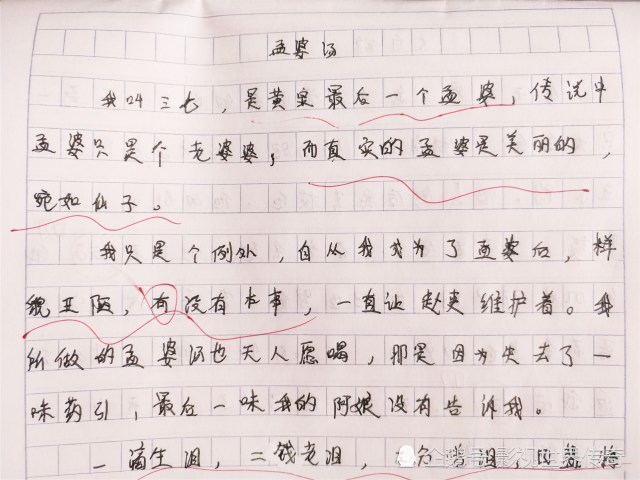 孟婆汤
我叫三七，是黄泉最后一个孟婆，传说中
孟婆只是个老婆婆，而真实的孟婆是美丽的，
宛如仙子。
我只是个例外，自从我成为了孟婆后，样
貌丑陋，而没有本事，一直让赵吏维护着。我
所做的孟婆汤也无人愿喝，那是因为失去了一
味药引，最后一味我的阿娘没有告诉我。
一滴生泪，二钱老泪，三分苦泪，四